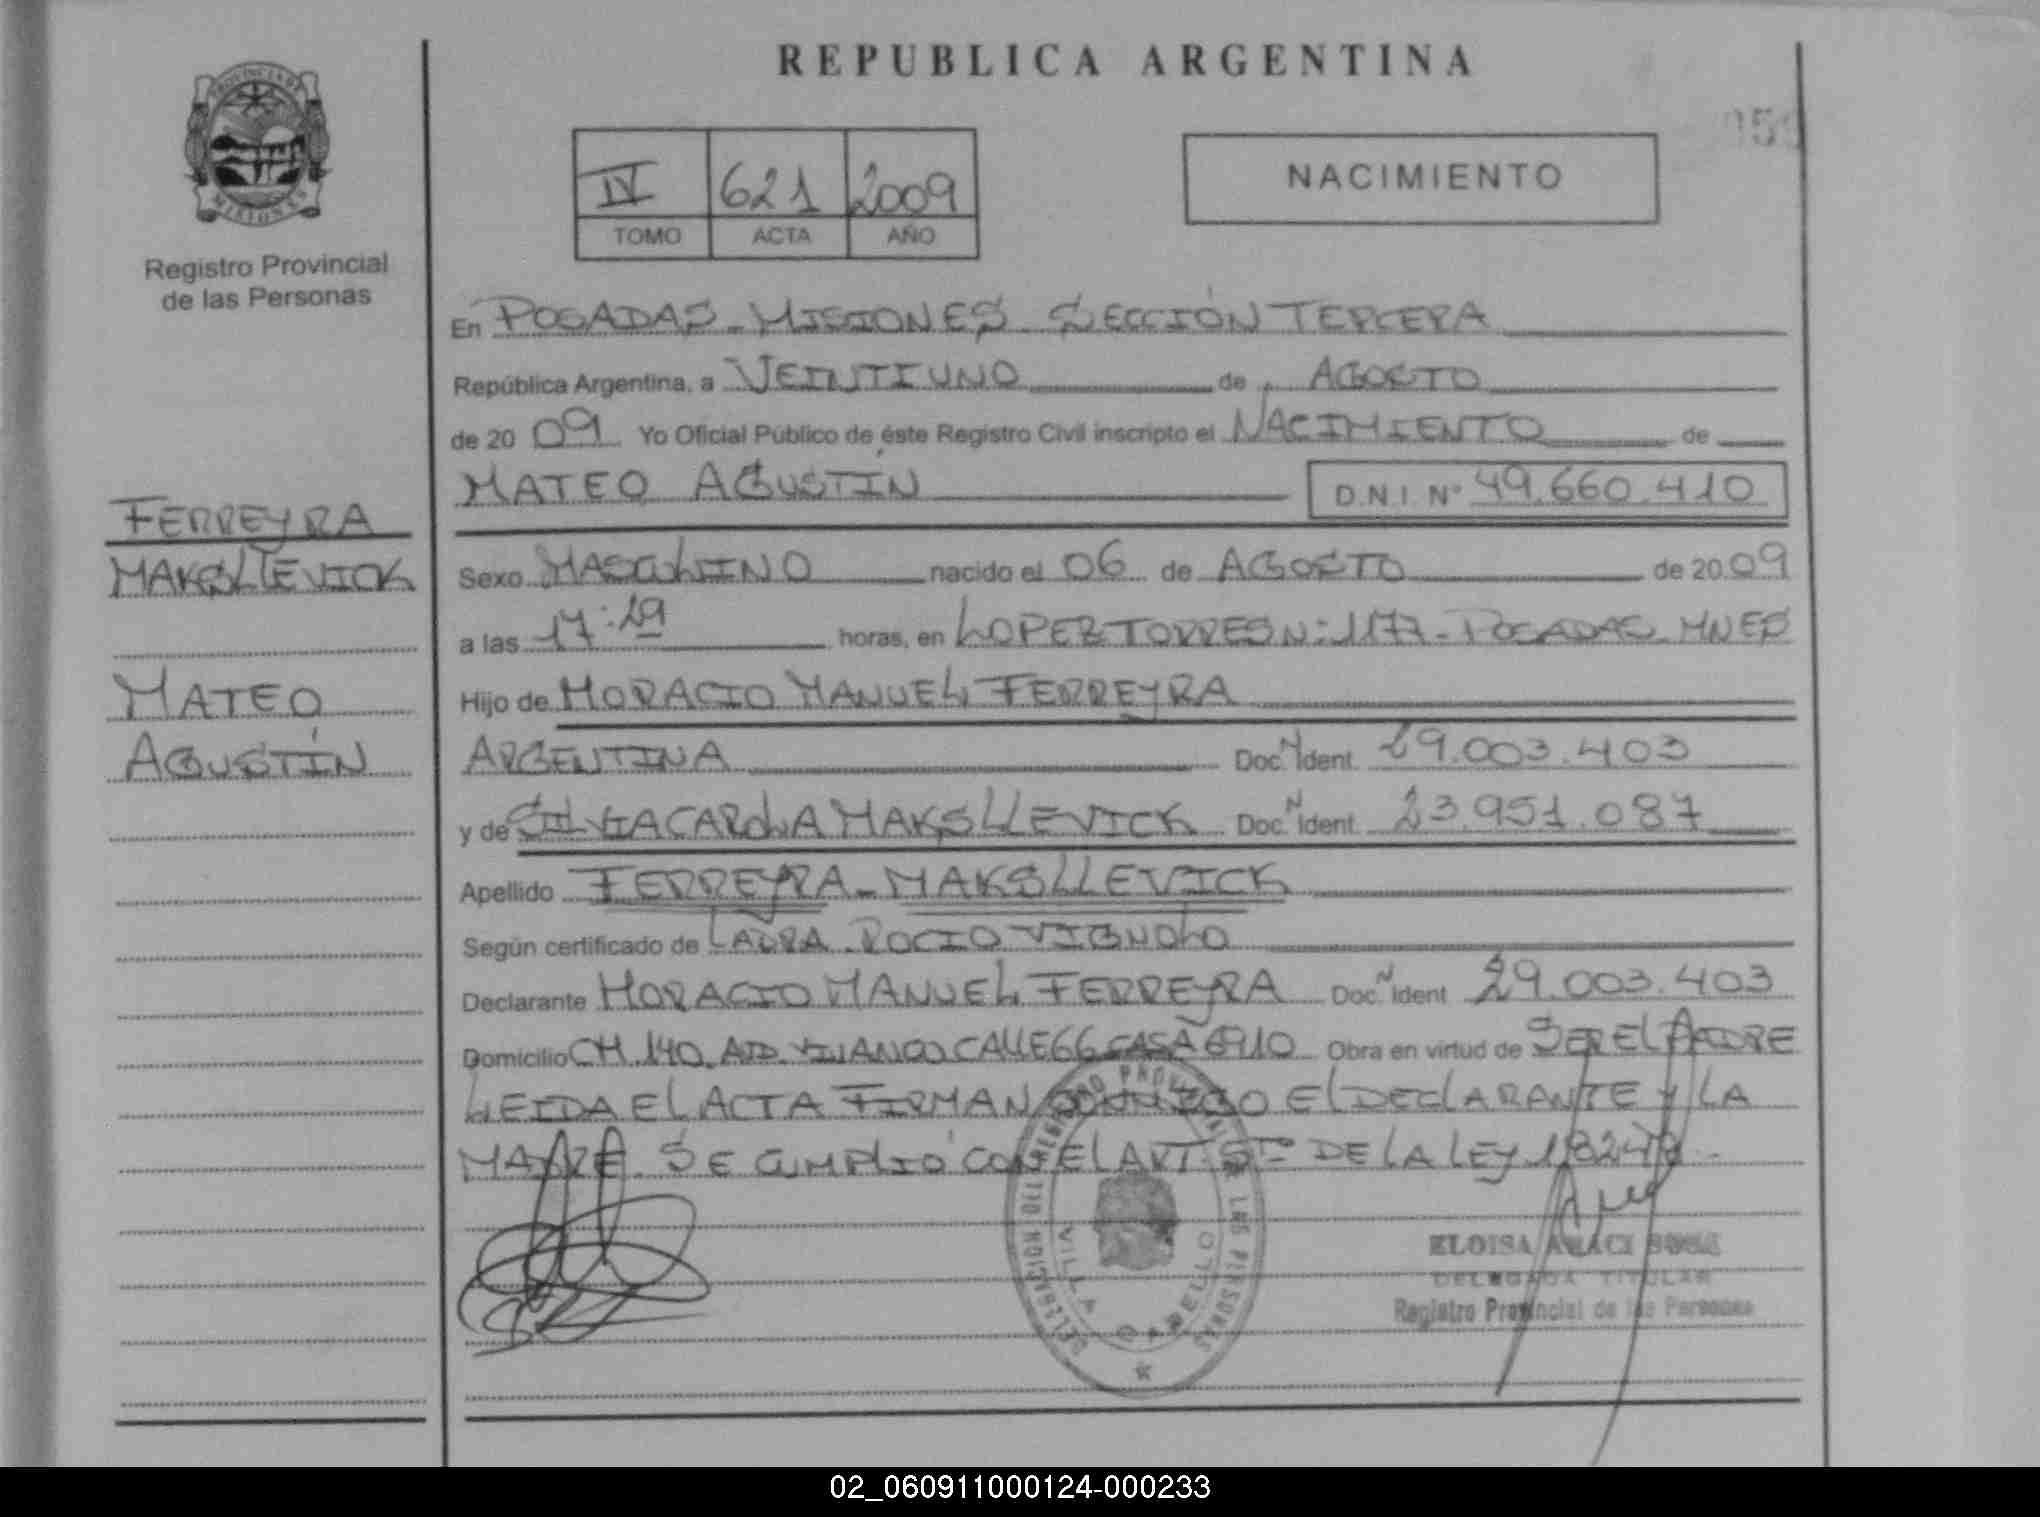 REPUBLICA ARGENTINA
PROVINCIA DE
MISIONES
Registro Provincial
de las Personas
IV 621 2009
TOMO ACTA AÑO
NACIMIENTO
En POSADAS - MISIONES - SECCIÓN TERCERA
República Argentina, a VEINTIUNO de AGOSTO
de 20 09 Yo Oficial Público de éste Registro Civil inscripto el NACIMIENTO de
MATEO AGUSTÍN D.N.I. Nº 49.660.410
FERREYRA
MAKSLLEVICK
MATEO
AGUSTÍN
Sexo MASCULINO nacido el 06 de AGOSTO de 20 09
a las 17:29 horas, en LOPEZ TORRES N: 1177 - POSADAS MNES
Hijo de HORACIO MANUEL FERREYRA
ARGENTINA Doc. N Ident. 29.003.403
y de SILVIA CAROLA MAKSLLEVICK Doc. N Ident. 23.951.087
Apellido FERREYRA - MAKSLLEVICK
Según certificado de LAURA ROCIO VIGNOLO
Declarante HORACIO MANUEL FERREYRA Doc. N Ident 29.003.403
Domicilio CH 140 CALLE 66 CASA Obra en virtud de SER EL PADRE
LEIDA EL ACTA FIRMAN EL DECLARANTE Y LA
MADRE. SE CUMPLIÓ CON EL ART 5to DE LA LEY 18248.-
DELEGACION DEL REGISTRO PROVINCIAL DE LAS PERSONAS
VILLA CABELLO
ELOISA ARACI SOSA
DELEGADA TITULAR
Registro Provincial de las Personas
02_060911000124-000233